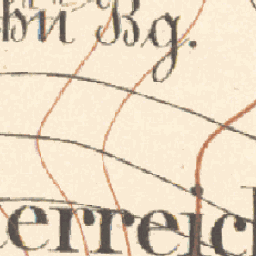 bü Bg.
terreich